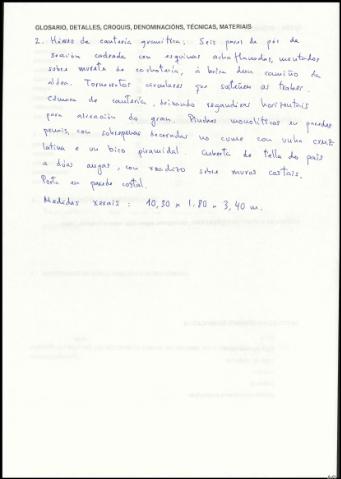 GLOSARIO, DETALLES, CROQUIS, DENOMINACIÓNS, TÉCNICAS, MATERIAIS
2. Hórreo de cantería granítica. Seis pares de pés de
sección cadrada con esquinas achaflanadas, montados
sobre murete de cachotería, á beira dun camiño da
aldea. Tornarratos circulares que sosteñen as trabes.
Cámara de cantería, deixando regandixas horizontais
para aireación do gran. Pinches monolíticos en paredes
penais, con sobrepenas decoradas no cume con unha cruz
latina e un bico piramidal. Cuberta de tella do país
a dúas augas, con sobre muros costais.
Porta en parede costal.
Medidas xerais : 10,30 x 1,80 x 3,40 m.